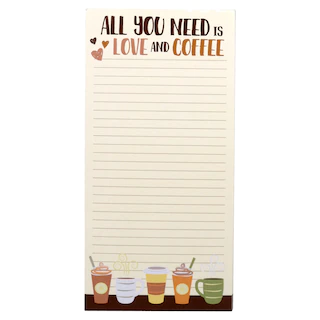 ALL YOU NEED IS
LOVE AND COFFEE